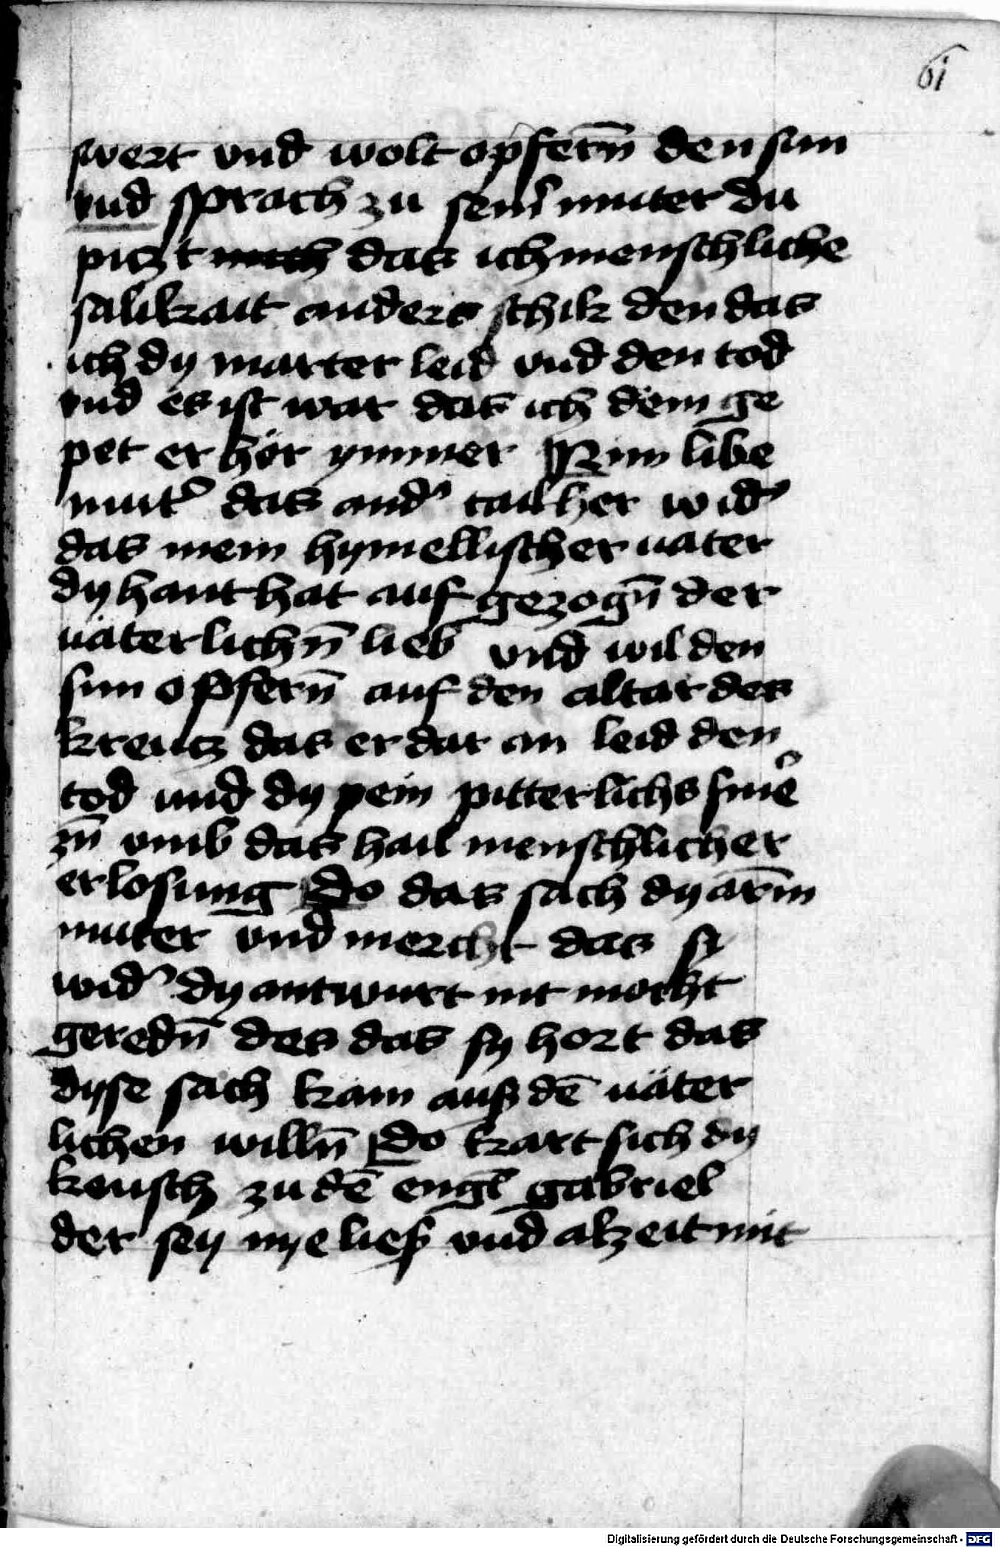 61
swert vnd wolt opfern̄ den sun
vnd sprach zu seinr̉ muter du
pitzt mich das ich menschliche
salikait anders schik den das
ich dy marter leid vnd den tod
vnd es ist war das ich dein ge
pet er hör ymmer Nim libe
mut᷑ das and᷑ tail her wid᷑
das mein hymellischer uater
dy hant hat auf gezogn̄ der
uäterlichn̄ lieb vnd wil den
sun opfern̄ auf den altar des
kreutz das er dar an leid den
tod und dy pein pitterlichs smer
zn̄ vmb das hail menschlicher
erlosung Do das sach dy arm̄
muter vnd mercht das sy
wid᷑ dy antwurt nit mocht
geredn̄ des das sy hort das
dyse sach kam auß dē uäter
lichen willn̄ Do kart sich dy
keusch zu dē engl̄ gabriel
der sey nye ließ vnd alzeit mit
Digitalisierung gefördert durch die Deutsche Forschungsgemeinschaft - DFG